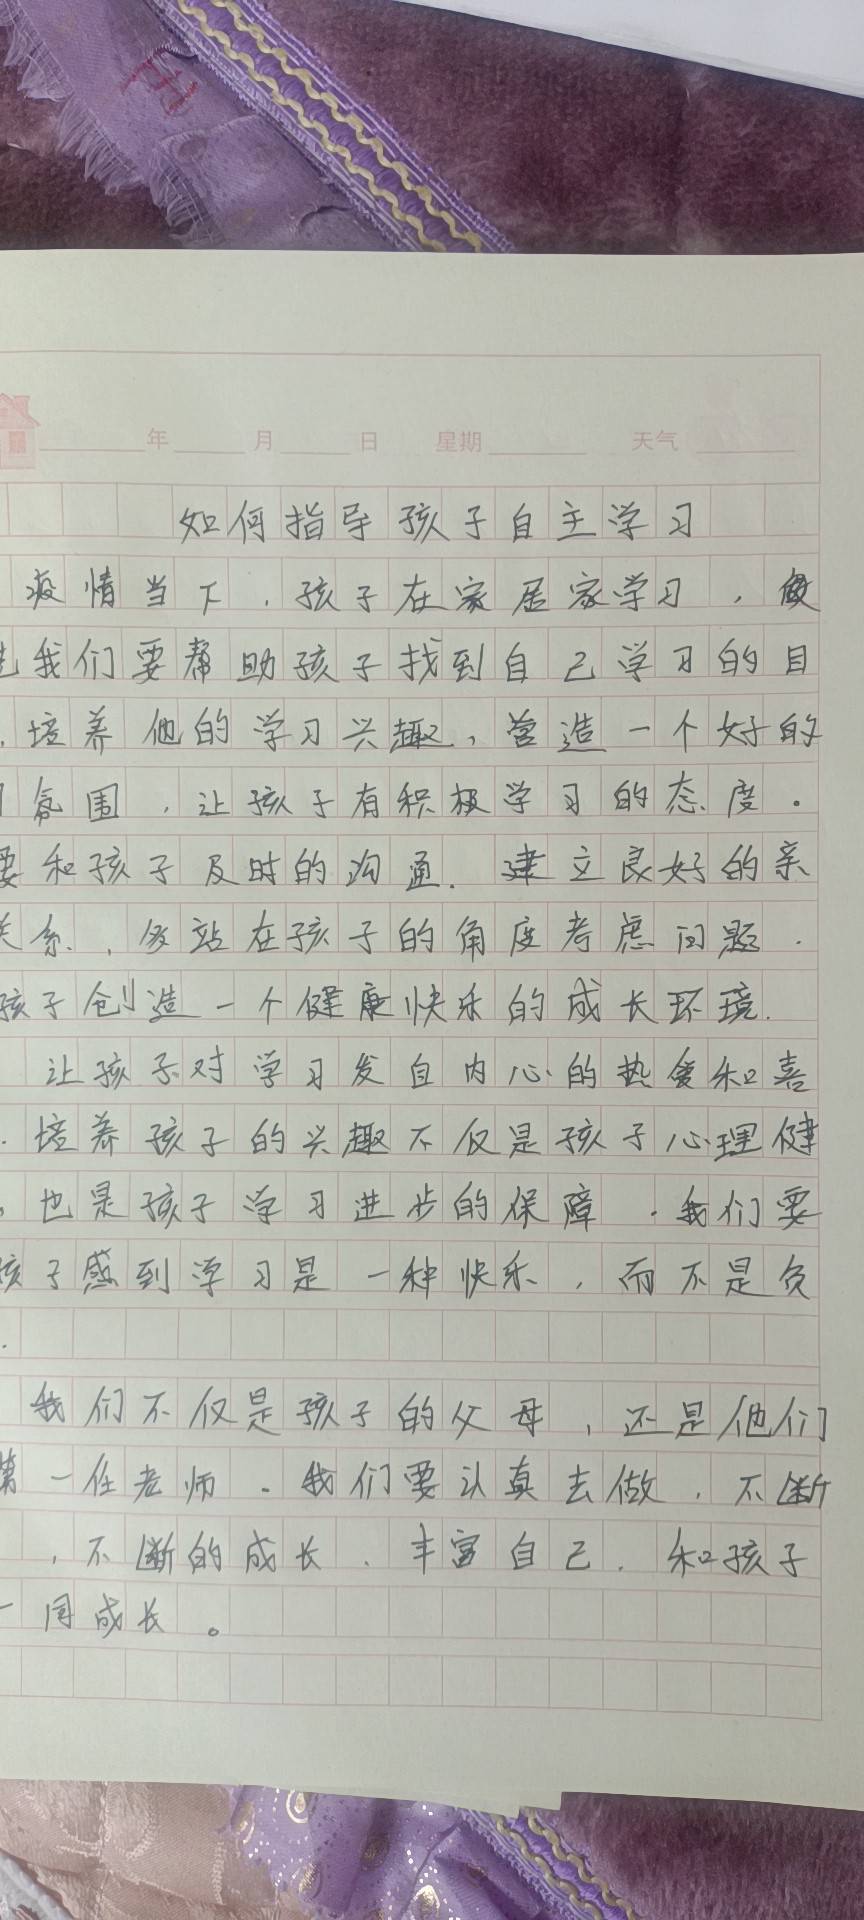 年 月 日 星期 天气
如何指导孩子自主学习
疫情当下，孩子在家居家学习，做
我们要帮助孩子找到自己学习的目
，培养他的学习兴趣，营造一个好的
氛围，让孩子有积极学习的态度．
要和孩子及时的沟通．建立良好的亲
关系．，多站在孩子的角度考虑问题．
孩子创造一个健康快乐的成长环境．
让孩子对学习发自内心的热爱和喜
．培养孩子的兴趣不仅是孩子心理健
，也是孩子学习进步的保障．我们要
孩子感到学习是一种快乐，而不是负
．
我们不仅是孩子的父母，还是他们
第一任老师．我们要认真去做，不断
，不断的成长．丰富自己．和孩子
一同成长。